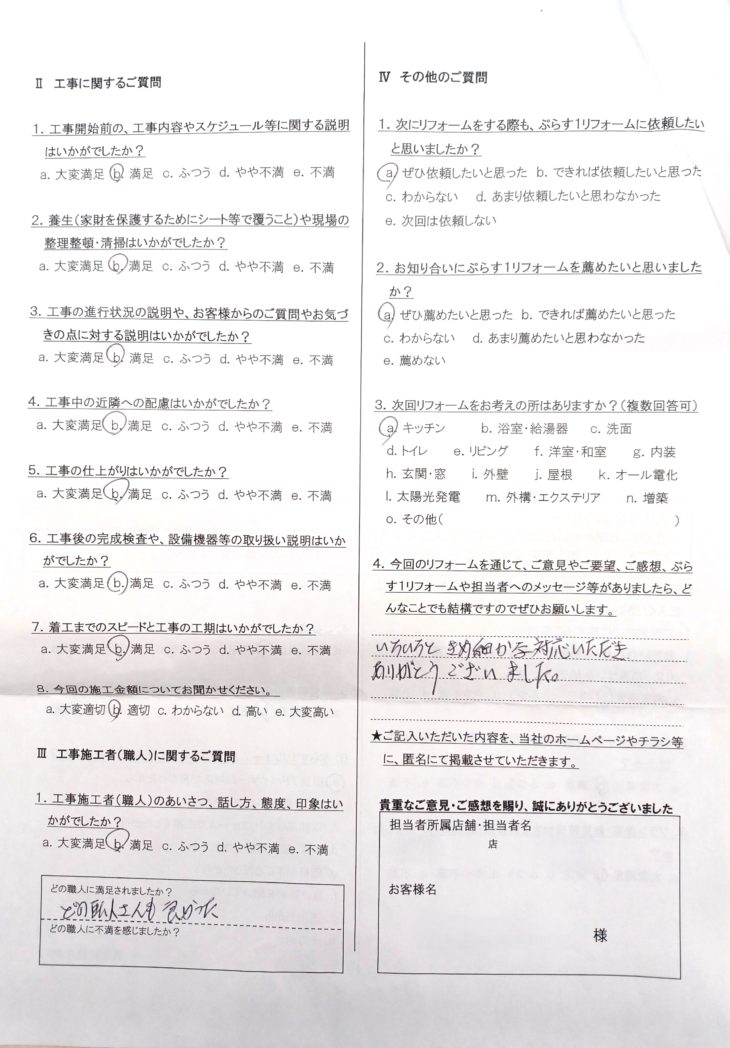 Ⅱ 工事に関するご質問
1. 工事開始前の、工事内容やスケジュール等に関する説明
はいかがでしたか？
a. 大変満足 b. 満足 c. ふつう d. やや不満 e. 不満
2. 養生(家財を保護するためにシート等で覆うこと)や現場の
整理整頓・清掃はいかがでしたか？
a. 大変満足 b. 満足 c. ふつう d. やや不満 e. 不満
3. 工事の進行状況の説明や、お客様からのご質問やお気づ
きの点に対する説明はいかがでしたか？
a. 大変満足 b. 満足 c. ふつう d. やや不満 e. 不満
4. 工事中の近隣への配慮はいかがでしたか？
a. 大変満足 b. 満足 c. ふつう d. やや不満 e. 不満
5. 工事の仕上がりはいかがでしたか？
a. 大変満足 b. 満足 c. ふつう d. やや不満 e. 不満
6. 工事後の完成検査や、設備機器等の取り扱い説明はいか
がでしたか？
a. 大変満足 b. 満足 c. ふつう d. やや不満 e. 不満
7. 着工までのスピードと工事の工期はいかがでしたか？
a. 大変満足 b. 満足 c. ふつう d. やや不満 e. 不満
8. 今回の施工金額についてお聞かせください。
a. 大変適切 b. 適切 c. わからない d. 高い e. 大変高い
Ⅲ 工事施工者(職人)に関するご質問
1. 工事施工者(職人)のあいさつ、話し方、態度、印象はい
かがでしたか？
a. 大変満足 b. 満足 c. ふつう d. やや不満 e. 不満
どの職人に満足されましたか？
どの職人さんも良かった
どの職人に不満を感じましたか？
Ⅳ その他のご質問
1. 次にリフォームをする際も、ぷらす1リフォームに依頼したい
と思いましたか？
a. ぜひ依頼したいと思った b. できれば依頼したいと思った
c. わからない d. あまり依頼したいと思わなかった
e. 次回は依頼しない
2. お知り合いにぷらす1リフォームを薦めたいと思いました
か？
a. ぜひ薦めたいと思った b. できれば薦めたいと思った
c. わからない d. あまり薦めたいと思わなかった
e. 薦めない
3. 次回リフォームをお考えの所はありますか？(複数回答可)
a. キッチン b. 浴室・給湯器 c. 洗面
d. トイレ e. リビング f. 洋室・和室 g. 内装
h. 玄関・窓 i. 外壁 j. 屋根 k. オール電化
l. 太陽光発電 m. 外構・エクステリア n. 増築
o. その他( )
4. 今回のリフォームを通じて、ご意見やご要望、ご感想、ぷら
す1リフォームや担当者へのメッセージ等がありましたら、ど
んなことでも結構ですのでぜひお願いします。
いろいろと きめ細かな対応いただき
ありがとうございました。
★ご記入いただいた内容を、当社のホームページやチラシ等
に、匿名にて掲載させていただきます。
貴重なご意見・ご感想を賜り、誠にありがとうございました
担当者所属店舗・担当者名
店
お客様名
様